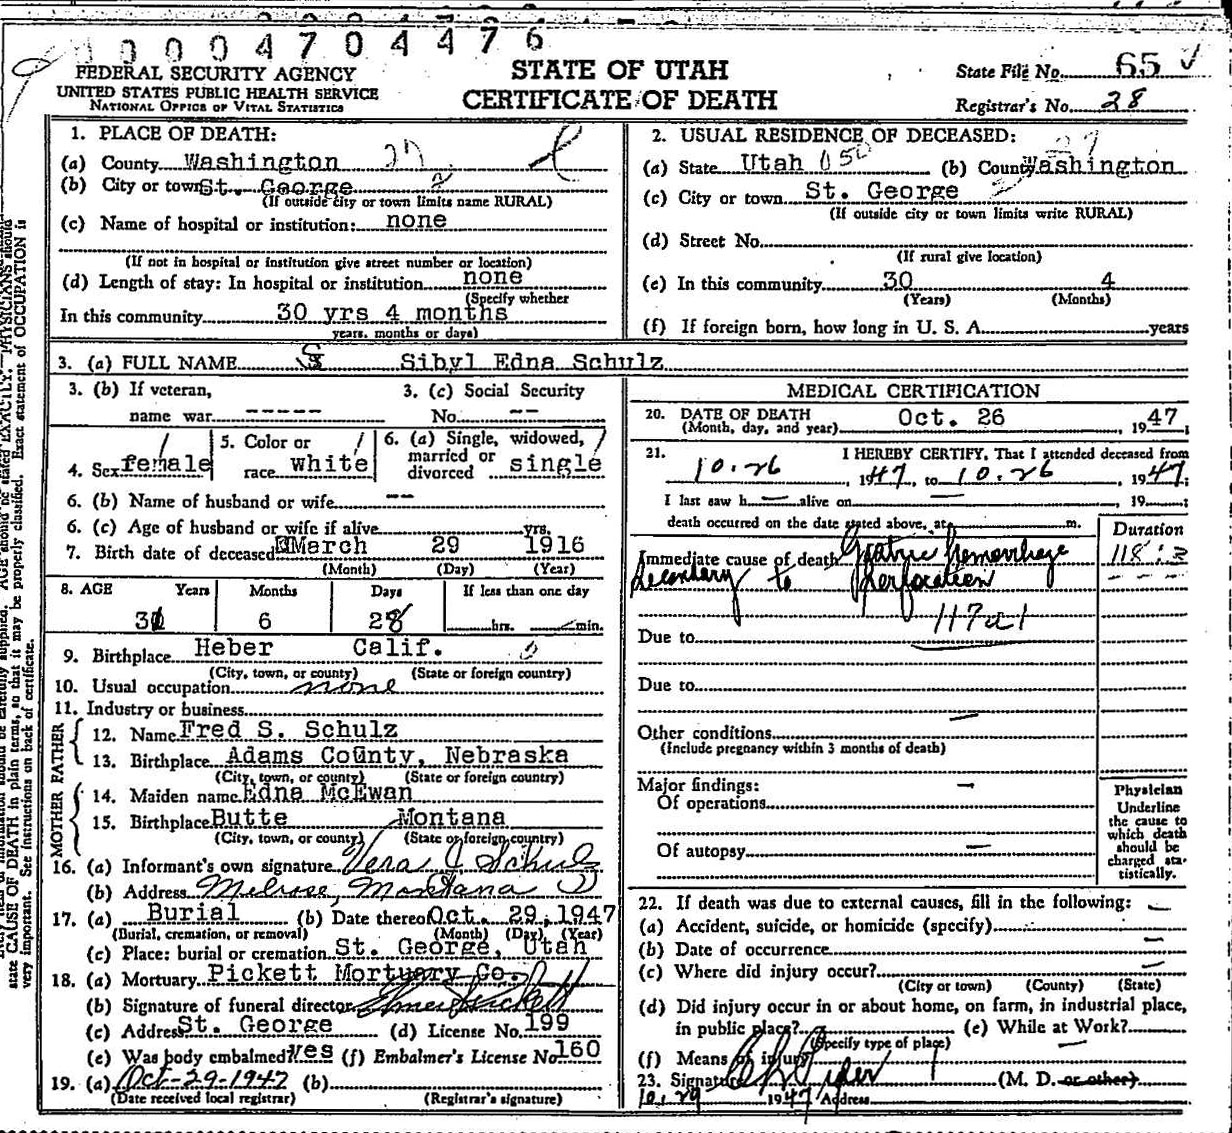 00004704476
FEDERAL SECURITY AGENCY
UNITED STATES PUBLIC HEALTH SERVICE
NATIONAL OFFICE OF VITAL STATISTICS
STATE OF UTAH
CERTIFICATE OF DEATH
State File No. 65
Registrar's No. 28
1. PLACE OF DEATH:
(a) County Washington 27
(b) City or town St. George 2
(If outside city or town limits name RURAL)
(c) Name of hospital or institution: none
(If not in hospital or institution give street number or location)
(d) Length of stay: In hospital or institution none
(Specify whether
In this community 30 yrs 4 months
years, months or days)
2. USUAL RESIDENCE OF DECEASED:
27
(a) State Utah 050 (b) County Washington
(c) City or town St. George
(If outside city or town limits write RURAL)
(d) Street No.
(If rural give location)
(e) In this community 30 4
(Years) (Months)
(f) If foreign born, how long in U. S. A. years
3. (a) FULL NAME S Sibyl Edna Schulz
3. (b) If veteran,
name war -----
3. (c) Social Security
No. --
4. Sex female
5. Color or
race white
6. (a) Single, widowed,
married or
divorced single
6. (b) Name of husband or wife --
6. (c) Age of husband or wife if alive yrs.
7. Birth date of deceased March 29 1916
(Month) (Day) (Year)
8. AGE Years Months Days If less than one day
31 6 28 hrs. min.
9. Birthplace Heber Calif.
(City, town, or county) (State or foreign country)
10. Usual occupation none
11. Industry or business
FATHER
12. Name Fred S. Schulz
13. Birthplace Adams County, Nebraska
(City, town, or county) (State or foreign country)
MOTHER
14. Maiden name Edna McEwan
15. Birthplace Butte Montana
(City, town, or county) (State or foreign country)
16. (a) Informant's own signature Vera J Schulz
(b) Address Melrose, Montana
17. (a) Burial (b) Date thereof Oct. 29, 1947
(Burial, cremation, or removal) (Month) (Day) (Year)
(c) Place: burial or cremation St. George, Utah
18. (a) Mortuary Pickett Mortuary Co.
(b) Signature of funeral director Elmer Pickett
(c) Address St. George (d) License No. 199
(e) Was body embalmed? yes (f) Embalmer's License No. 160
19. (a) Oct-29-1947 (b)
(Date received local registrar) (Registrar's signature)
MEDICAL CERTIFICATION
20. DATE OF DEATH Oct. 26, 1947;
(Month, day, and year)
21. I HEREBY CERTIFY, That I attended deceased from
10.26, 1947, to 10.26, 1947;
I last saw h— alive on — 19 ;
death occurred on the date stated above, at m.
Duration
Immediate cause of death Gastric hemorrhage
secondary to perforation
117a1
Due to
Due to
Other conditions —
(Include pregnancy within 3 months of death)
Major findings:
Of operations —
Of autopsy —
Physician
Underline
the cause to
which death
should be
charged sta-
tistically.
22. If death was due to external causes, fill in the following: —
(a) Accident, suicide, or homicide (specify)
(b) Date of occurrence —
(c) Where did injury occur? —
(City or town) (County) (State)
(d) Did injury occur in or about home, on farm, in industrial place,
in public place? (e) While at Work? —
(Specify type of place)
(f) Means of injury
23. Signature (M. D. or other)
10.29 1947 Address
state CAUSE OF DEATH in plain terms, so that it may be properly classified. Exact statement of OCCUPATION is
very important. See instructions on back of certificate.